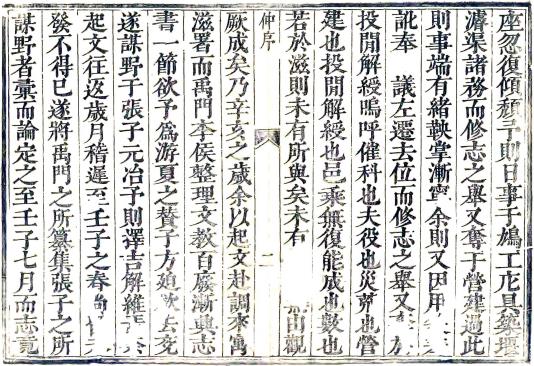 座忽復傾頹予則日事于鳩工庀具築堰
濬渠諸務而修志之舉又奪于營建過此
則事端有緒鞅掌漸寧余則又因用
訿奉 議左遷去位而修志之舉又
投閒解綬嗚呼催科也夫役也災荐也營
建也投閒解綬也邑乘無復能成也數也
若於滋則未有所與矣未有 由觀
仲序 二
厥成矣乃辛亥之歲余以起文赴調來寓
滋署而禹門李侯整理文教百廢漸興志
書一節欲予爲游夏之贊予方
遂謀野于張子元冶予則擇吉解維
起文往返歲月稽遲至壬子之春
發不得已遂將禹門之所纂集張子之所
謀野者彙而論定之至壬子七月而志竟